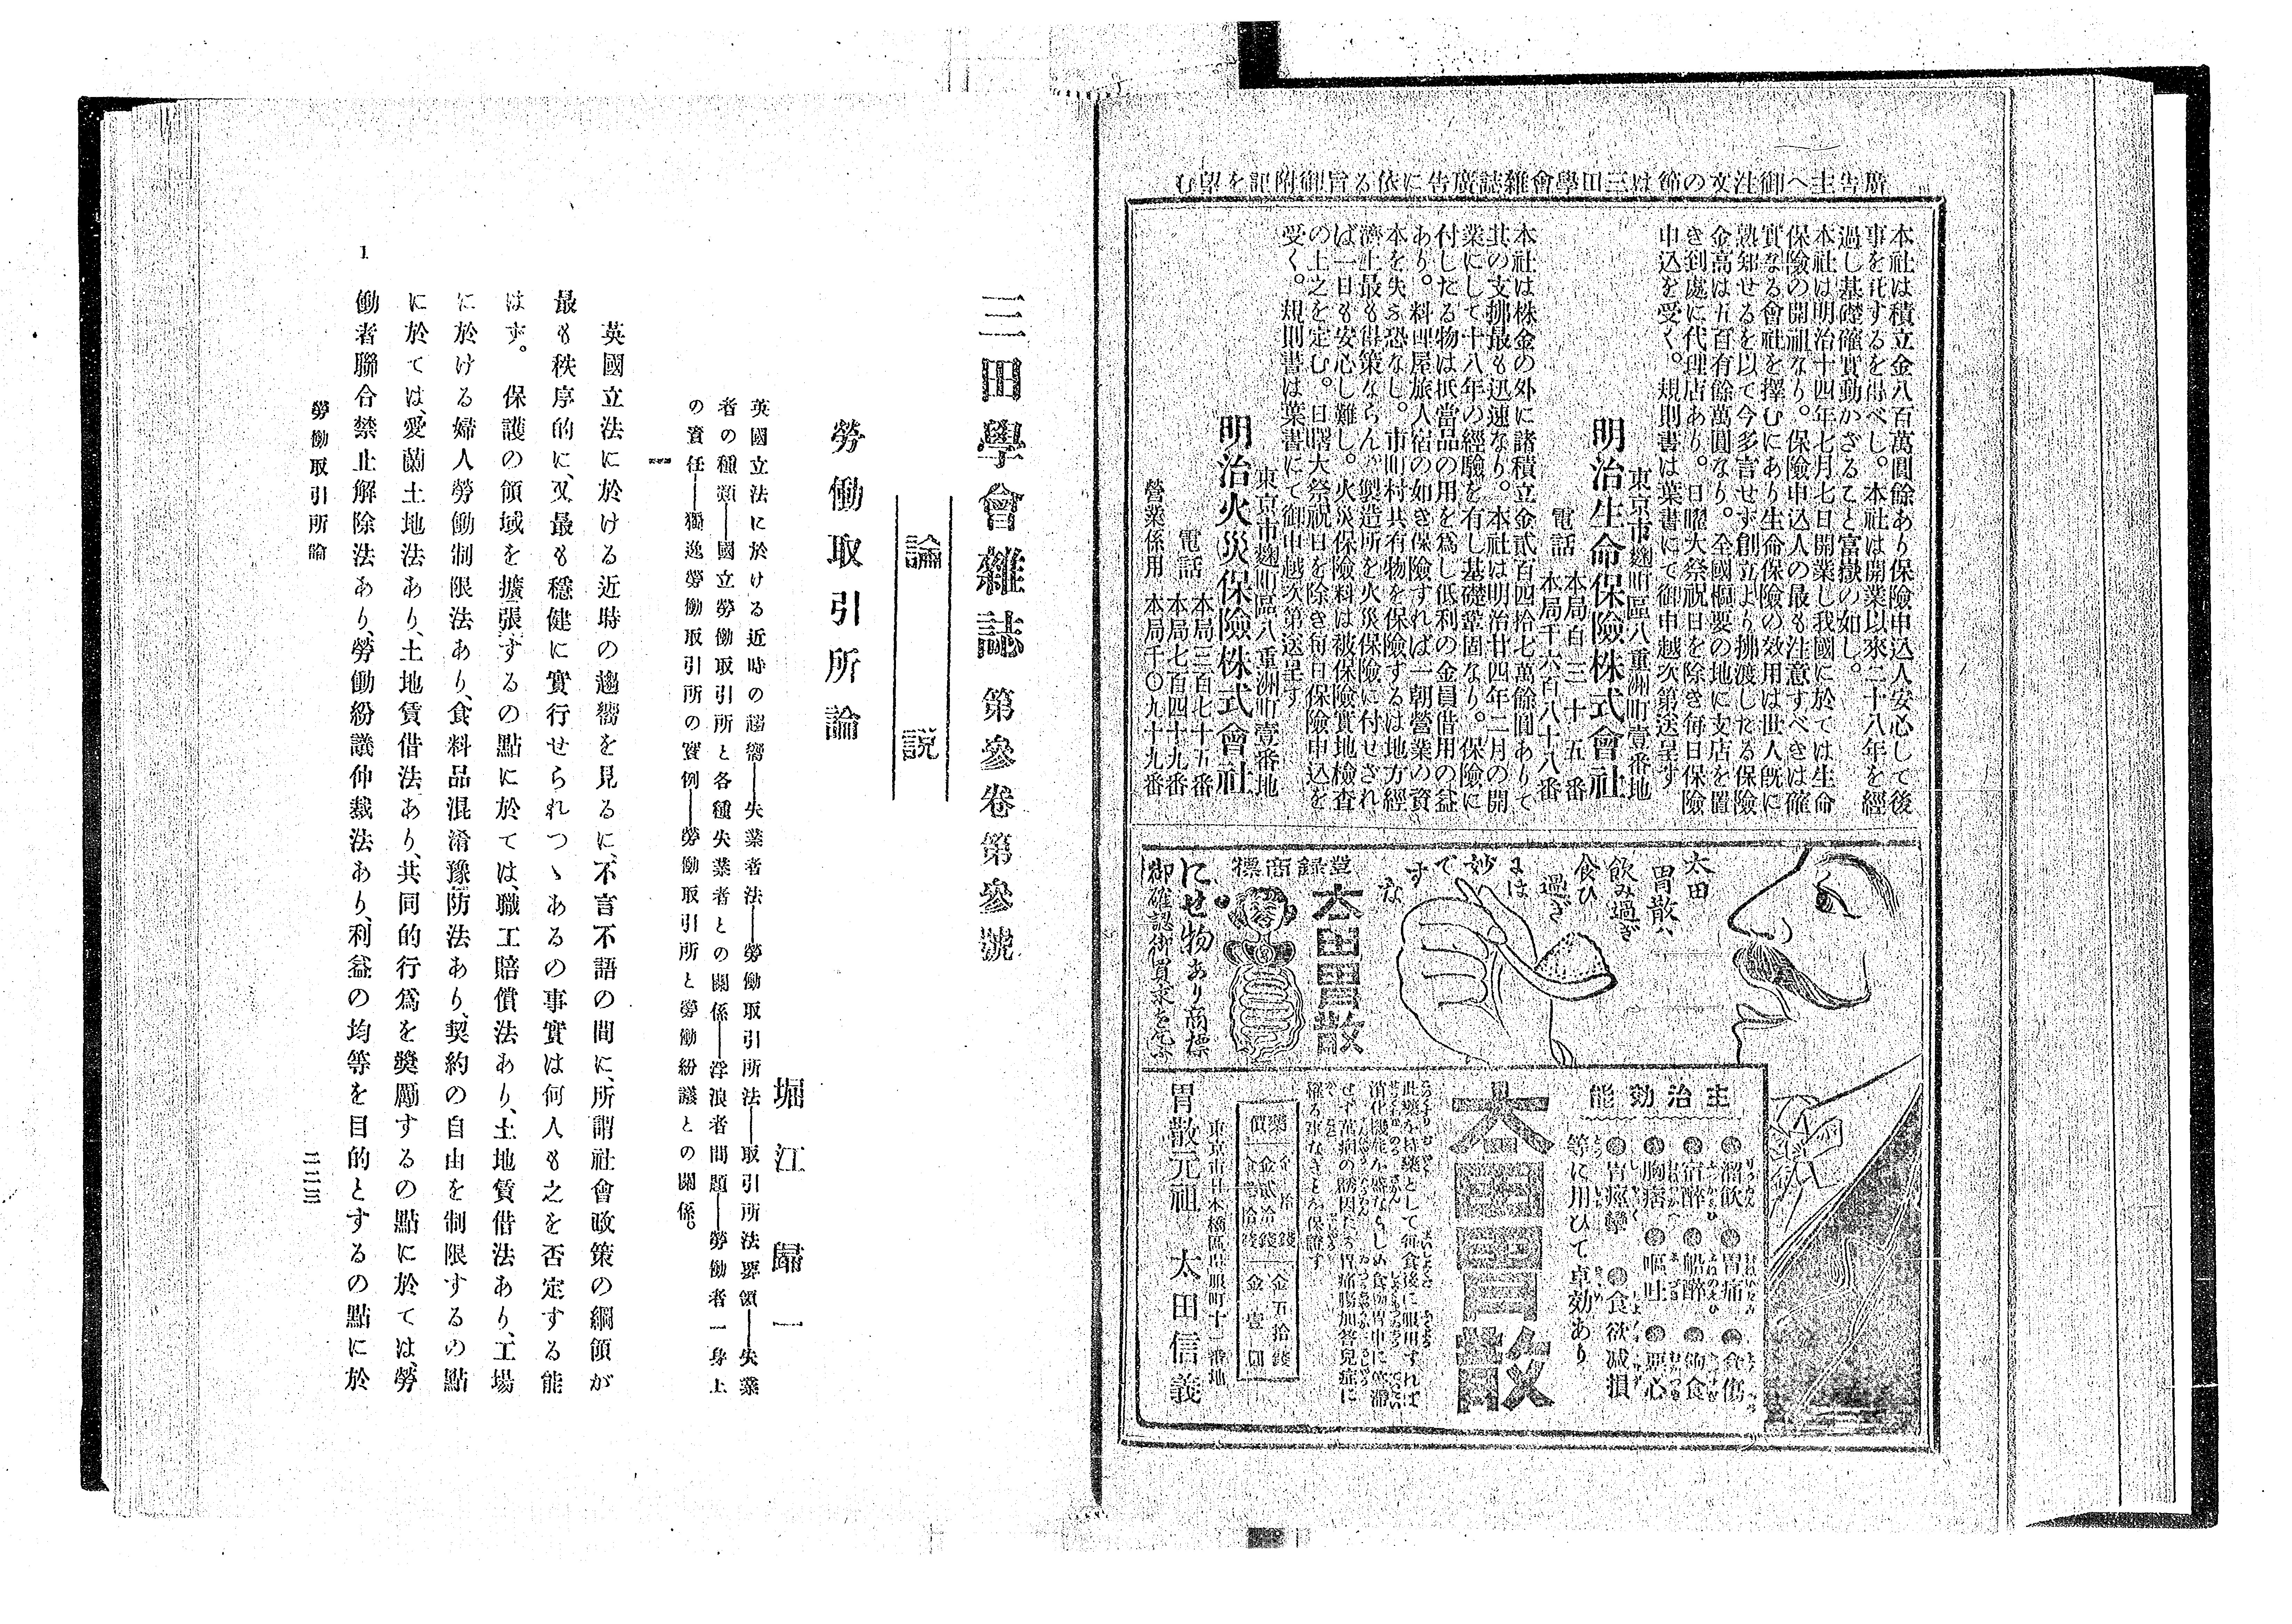 廣告主へ御注文の節は三田學會雜誌廣告に依る旨御附記を望む
本社は積立金八百萬圓餘あり保險申込人安心して後
事を託するを得べし。本社は開業以來二十八年を經
過し基礎確實動かざること富嶽の如し。
本社は明治十四年七月七日開業し我國に於ては生命
保險の開祖なり。保險申込人の最も注意すべきは確
實なる會社を擇むにあり生命保險の効用は世人既に
熟知せるを以て今多言せず創立より拂渡したる保險
金高は五百有餘萬圓なり。全國樞要の地に支店を置
き到處に代理店あり。日曜大祭祝日を除き毎日保險
申込を受く。規則書は葉書にて御申越次第送呈す
東京市麹町區八重洲町壹番地
明治生命保險株式會社
電話
本局百三十五番
本局千六百八十八番
本社は株金の外に諸積立金貳百四拾七萬餘圓ありて
其の支拂最も迅速なり。本社は明治廿四年二月の開
業にして十八年の經驗を有し基礎鞏固なり。保險に
付したる物は抵當品の用を爲し低利の金員借用の益
あり。料理屋旅人宿の如き保險すれば一朝營業の資
本を失ふ恐なし。市町村共有物を保險するは地方經
濟上最も得策ならん。製造所を火災保險に付せされ
ば一日も安心し難し。火災保險料は被保險實地檢査
の上之を定む。日曜大祭祝日を除き毎日保險申込を
受く。規則書は葉書にて御申越次第送呈す
東京市麹町區八重洲町壹番地
明治火災保險株式會社
電話
本局三百七十五番
本局七百四十九番
營業係用 本局千〇九十九番
太田
胃散ハ
飲み過ぎ
食ひ
過ぎ
には
妙
で
す
な
登録商標
太田胃散
にせ物あり商標
御確認御買求を乞ふ
主治効能
溜飲 胃痛 食傷
宿醉 船醉 飽食
胸痞 嘔吐 惡心
胃痙攣 食欲減損
等に用ひて卓効あり
太田胃散
此藥を持藥として毎食後に服用すれば
消化機能を盛ならしめ食物胃中に停滯
せず萬病の誘因たる胃痛腸加答兒症に
罹る事なきとを保證す
藥價
金五拾錢
金壹圓
東京市日本橋區呉服町十二番地
胃散元祖 太田信義
三田學會雜誌 第參卷第參號
論説
勞働取引所論
堀江歸一
英國立法に於ける近時の趨嚮——失業者法——勞働取引所法——取引所法要領——失業
者の種類——國立勞働取引所と各種失業者との關係——浮浪者問題——勞働者一身上
の責任——獨逸勞働取引所の實例——勞働取引所と勞働紛議との關係。
一
英國立法に於ける近時の趨嚮を見るに、不言不語の間に、所謂社會政策の綱領が
最も秩序的に、又最も穩健に實行せられつゝあるの事實は何人も之を否定する能
はず。保護の領域を擴張するの點に於ては、職工賠償法あり、土地賃借法あり、工場
に於ける婦人勞働制限法あり、食料品混淆豫防法あり、契約の自由を制限するの點
に於ては、愛蘭土地法あり、土地賃借法あり、共同的行爲を奬勵するの點に於ては、勞
働者聯合禁止解除法あり、勞働紛議仲裁法あり、利益の均等を目的とするの點に於
勞働取引所論
三二三
1